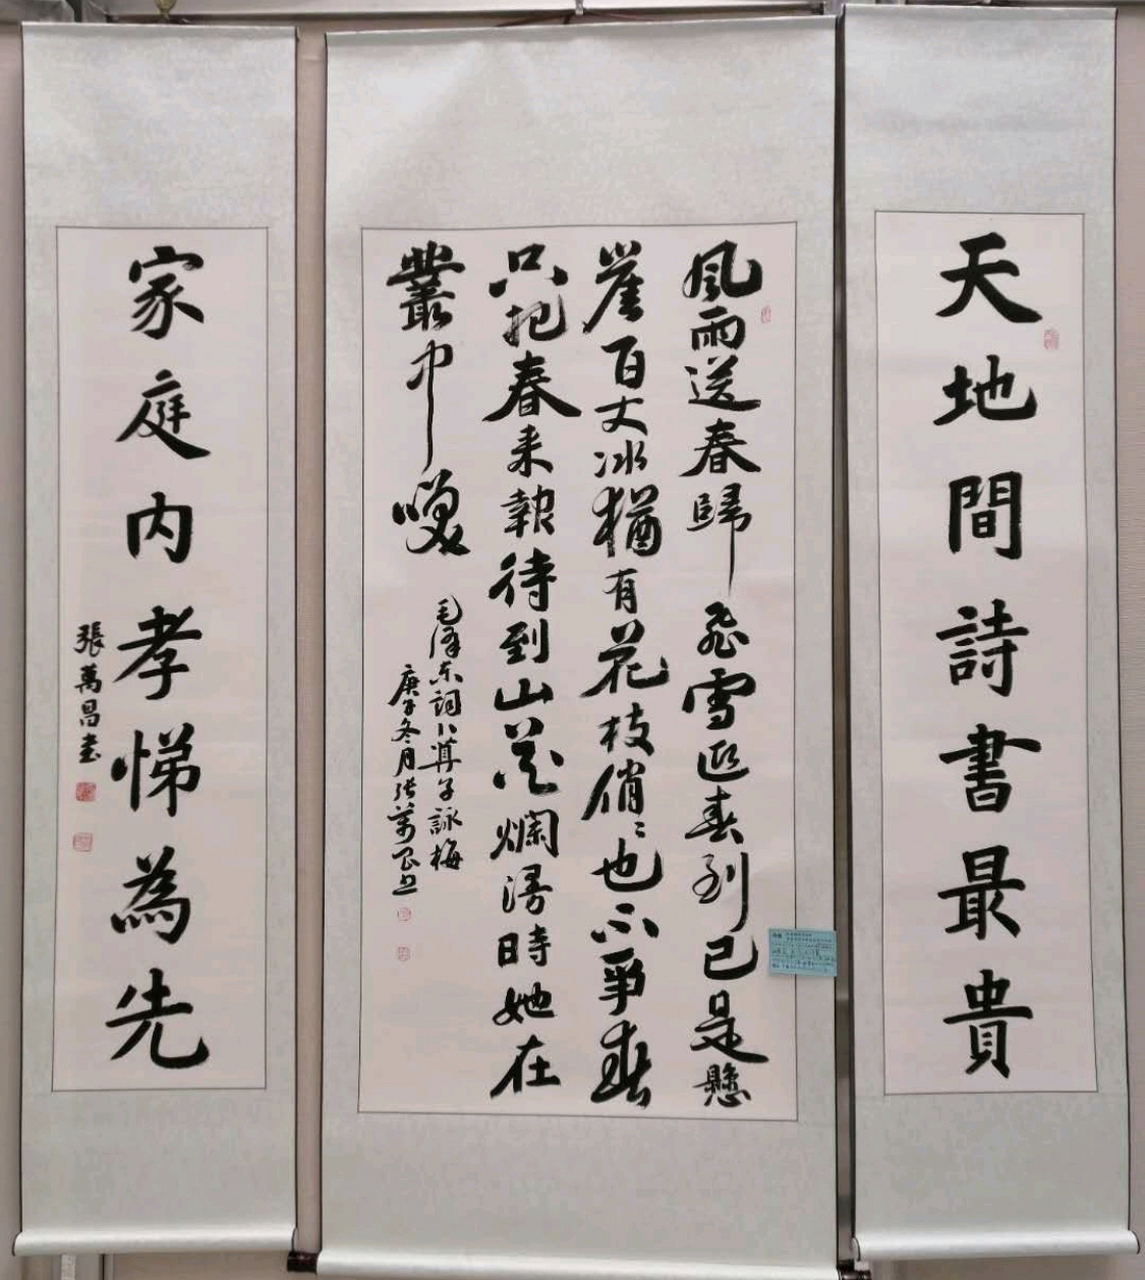 天地間詩書最貴
風雨送春歸飛雪迎春到已是懸
崖百丈冰猶有花枝俏々也不爭春
只把春来報待到山花爛漫時她在
叢中咲
毛澤东詞卜算子詠梅
庚子冬月张萬昌书
家庭内孝悌為先
張萬昌书